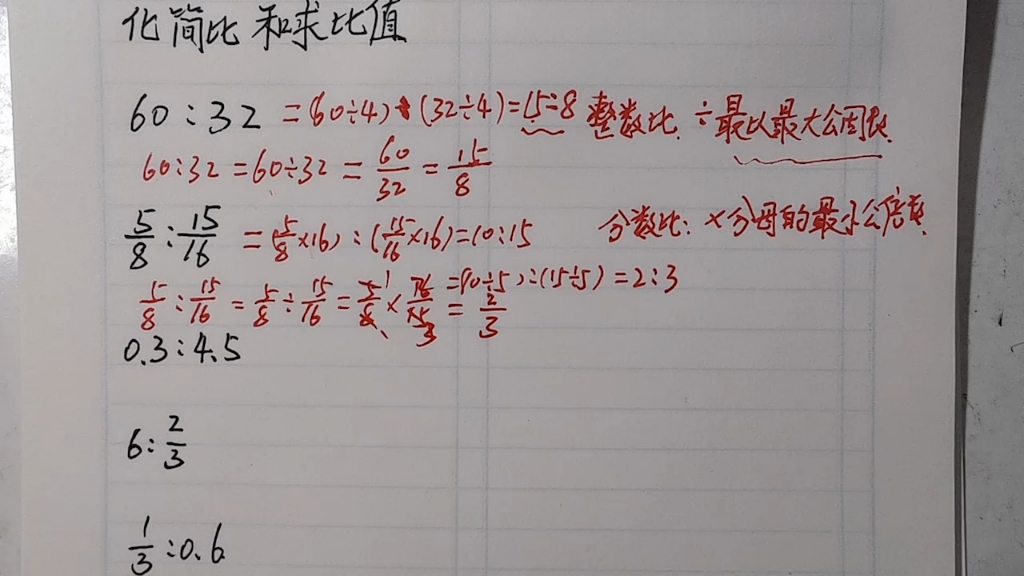 化简比和求比值
60:32 =(60÷4):(32÷4)=15:8 整数比. ÷最以最大公因数.
60:32=60÷32=60/32=15/8
5/8:15/16 =(5/8×16):(15/16×16)=10:15 分数比: ×分母的最小公倍数.
=(10÷5):(15÷5)=2:3
5/8:15/16=5/8÷15/16=5/8×16/15=2/3
0.3:4.5
6:2/3
1/3:0.6